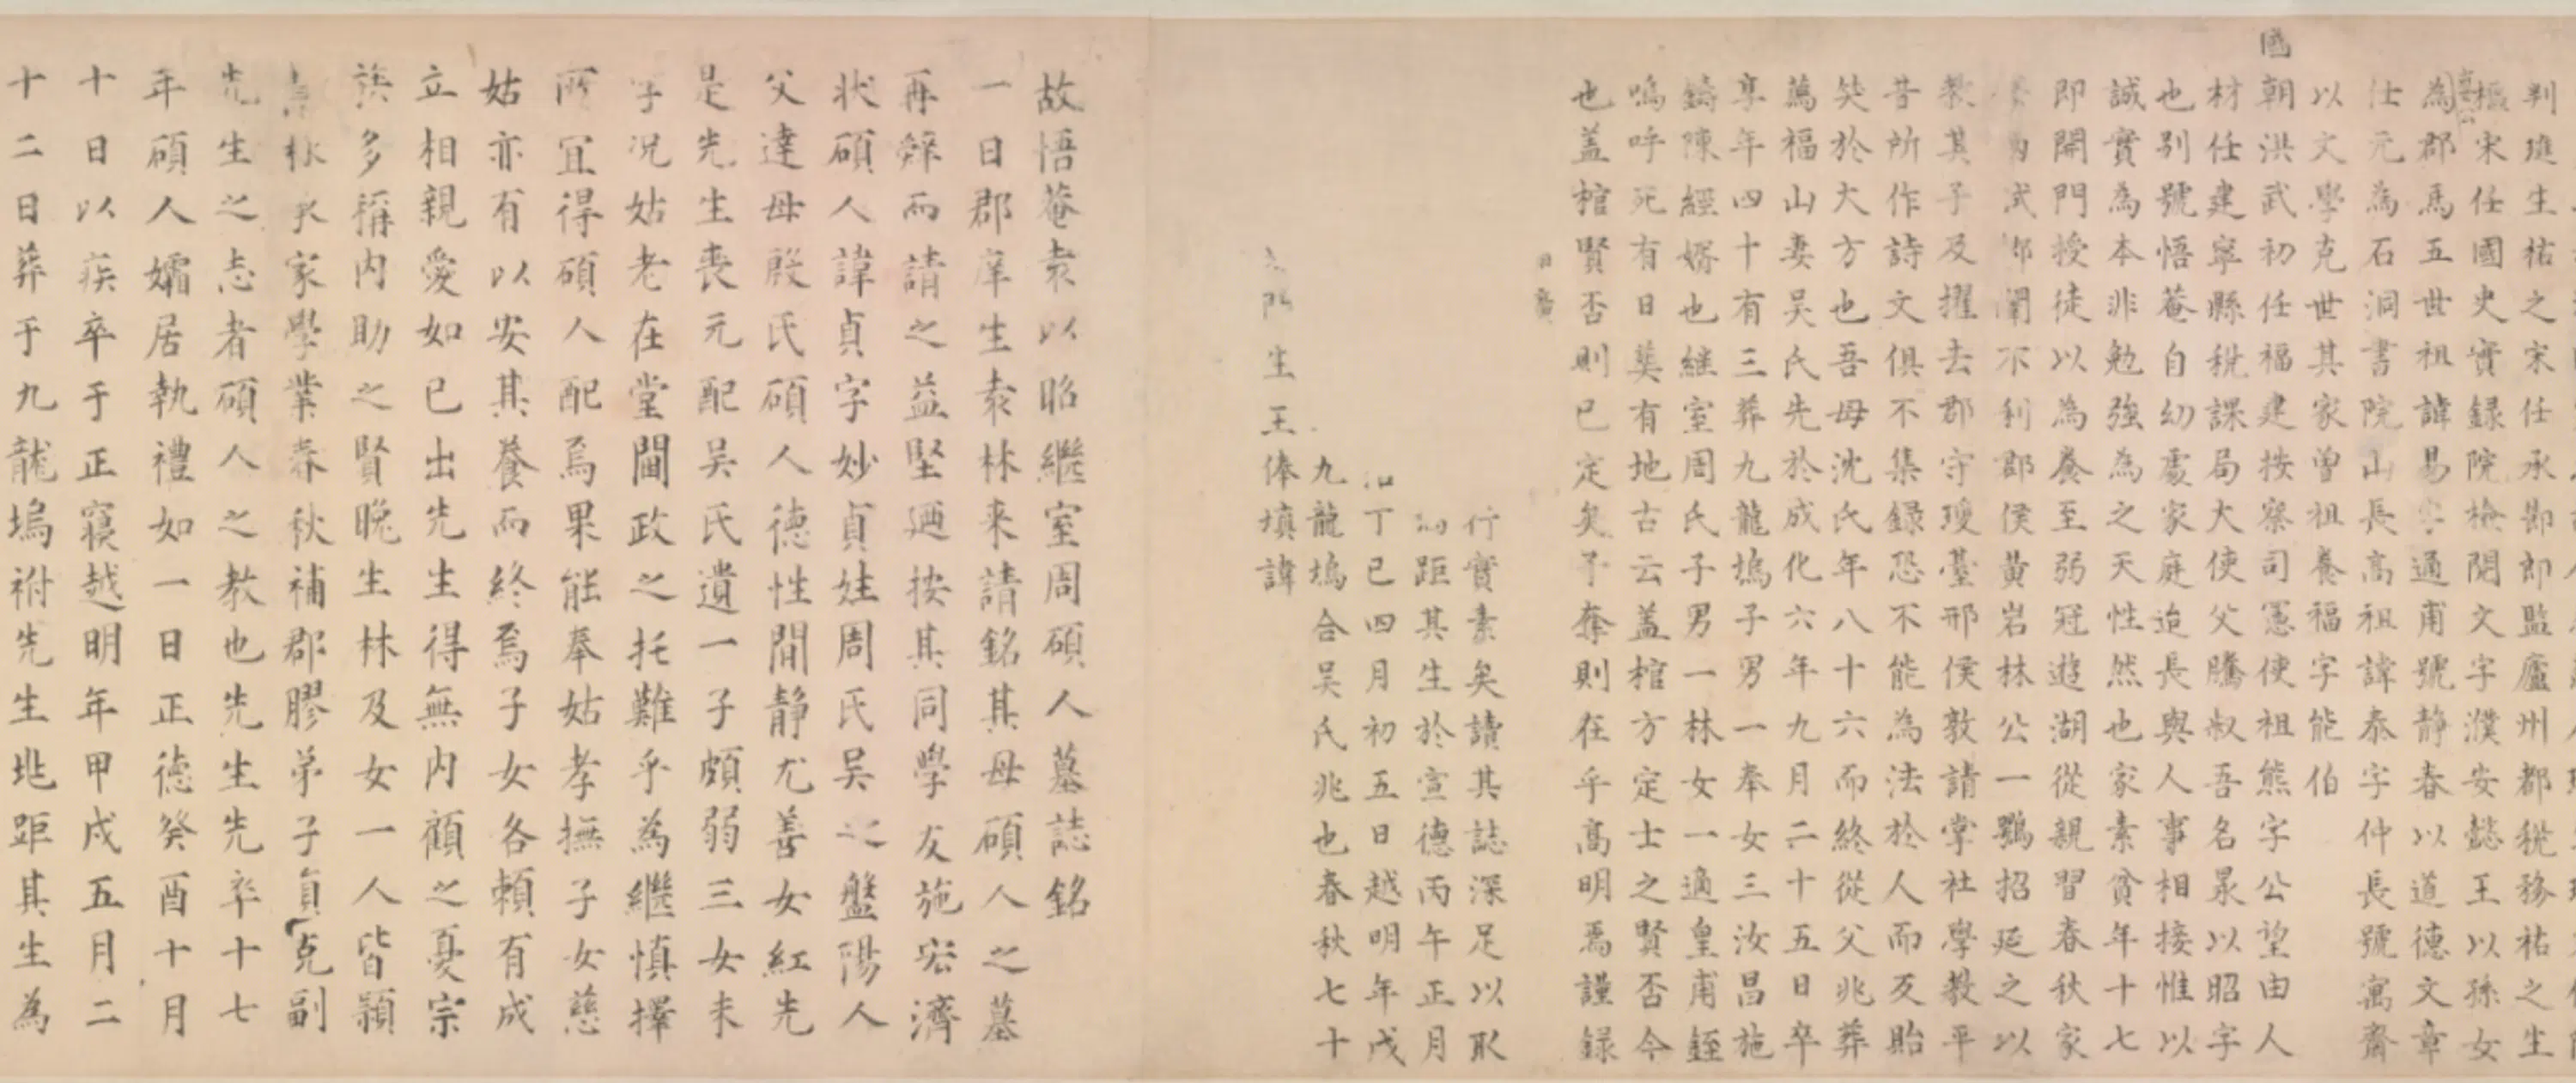 判進生祐之宋任承郡郎監廬州都稅務祐之生
攝宋任國史實録院檢閱文字濮安懿王以孫女
為郡馬五世祖諱易字通甫號靜春以道德文章
仕元為石洞書院山長高祖諱泰字仲長號寓齋
以文學克世其家曾祖養福字能伯
國朝洪武初任福建按察司憲使祖熊字公望由人
材任建寧縣稅課局大使父騰叔吾名杲以昭字
也别號悟菴自幼處家庭迨長與人事相接惟以
誠實為本非勉強為之天性然也家素貧年十七
即開門授徒以為養至弱冠遊湖從親習春秋家
試鄉闈不利郡侯黄岩林公一鶚招延之以
教其子及擢去郡守璦臺邢侯敦請掌社學教平
昔所作詩文俱不集録恐不能為法於人而反貽
笑於大方也吾母沈氏年八十六而終從父兆葬
萬福山妻吳氏先於成化六年九月二十五日卒
享年四十有三葬九龍塢子男一奉女三汝昌施
鑄陳經婿也継室周氏子男一林女一適皇甫銍
嗚呼死有日塟有地古云盖棺方定士之賢否今
也盖棺賢否則已定矣予奪則在乎高明焉謹録
行實素矣讀其誌深足以取
距其生於宣德丙午正月
丁巳四月初五日越明年戊
九龍塢合吴氏兆也春秋七十
門生王俸填諱
故悟菴袁以昭繼室周碩人墓誌銘
一日郡庠生袁林来請銘其母碩人之墓
再辤而請之益堅廼按其同學友施宏濟
状碩人諱貞字妙貞姓周氏吴之盤陽人
父達母殷氏碩人德性閒静尤善女紅先
是先生喪元配吴氏遺一子頗弱三女未
字况姑老在堂閫政之托難乎為繼慎擇
所宜得碩人配焉果能奉姑孝撫子女慈
姑亦有以安其養而終焉子女各頼有成
立相親愛如已出先生得無内顧之憂宗
族多稱内助之賢晚生林及女一人皆頴
林承家學業春秋補郡膠弟子員克副
先生之志者碩人之教也先生先卒十七
年碩人孀居執禮如一日正德癸酉十月
十日以疾卒于正寢越明年甲戌五月二
十二日葬于九龍塢祔先生兆距其生為